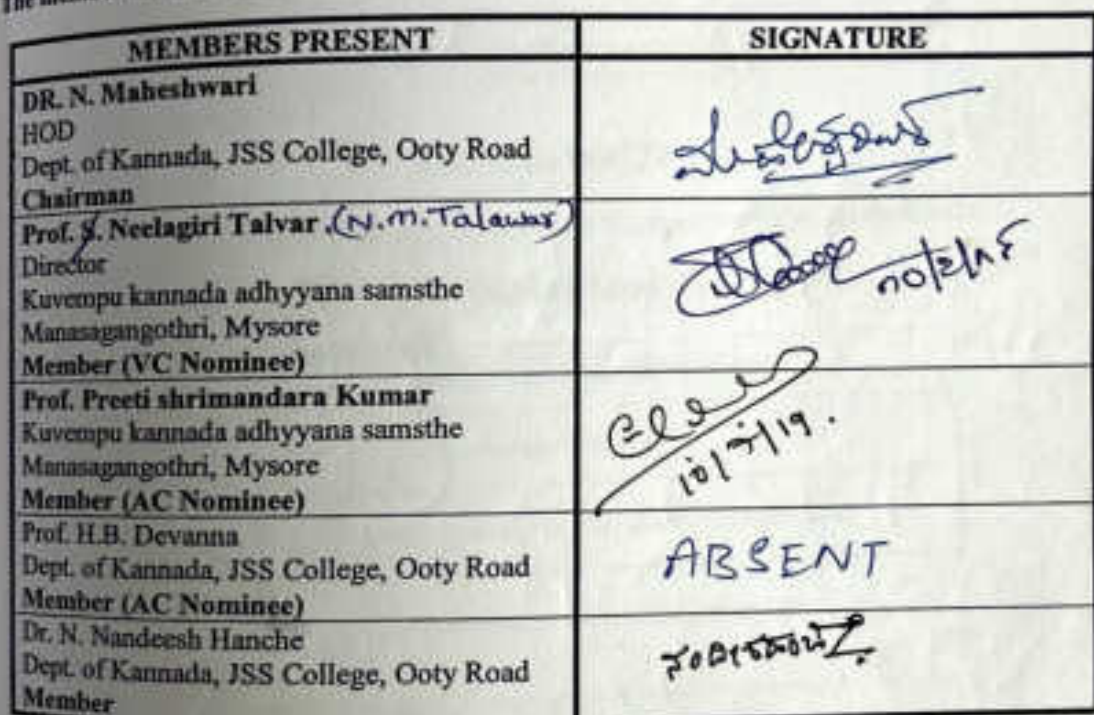 MEMBERS PRESENT
SIGNATURE
DR. N. Maheshwari
HOD
Dept. of Kannada, JSS College, Ooty Road
Chairman
Prof. S. Neelagiri Talvar (N.M. Talawar)
Director
Kuvempu kannada adhyyana samsthe
Manasagangothri, Mysore
Member (VC Nominee)
Prof. Preeti shrimandara Kumar
Kuvempu kannada adhyyana samsthe
Manasagangothri, Mysore
Member (AC Nominee)
10/7/19.
Prof. H.B. Devanna
Dept. of Kannada, JSS College, Ooty Road
Member (AC Nominee)
ABSENT
Dr. N. Nandeesh Hanche
Dept. of Kannada, JSS College, Ooty Road
Member